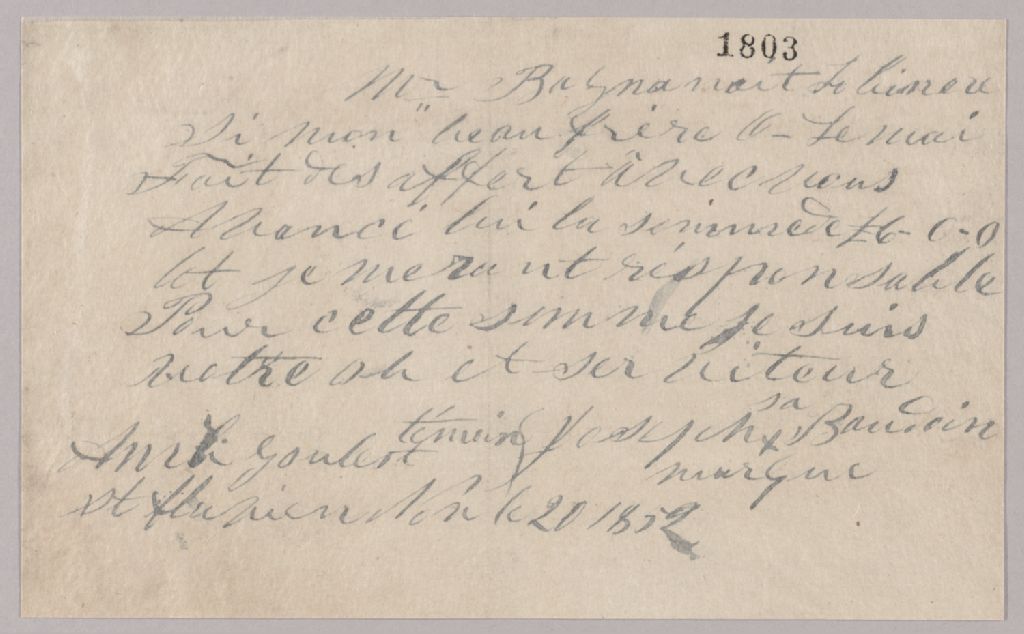 1803
Mr
Si mon beau frère O- Lemai
Fait des affert avec vous
Avancé lui la somme de £6-0-0
Et je me rant résponsable
Pour cette somme je suis
votre ob et serviteur
témoin Joseph sa x Baudoin
marque
Goulest
St Flavien Nov le 20 1852